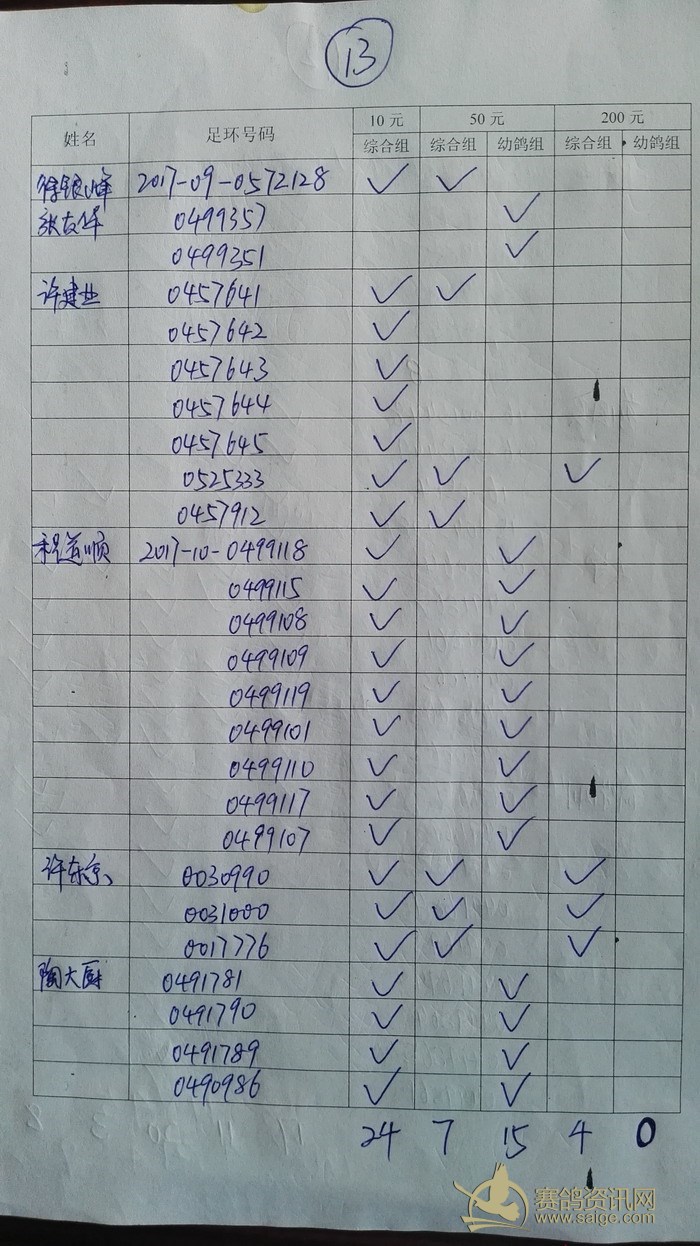 13
10 元 50 元 200 元
姓名 足环号码 综合组 综合组 幼鸽组 综合组 幼鸽组
徐银峰 2017-09-0572128 ✓ ✓
张友华 0499357 ✓
0499351 ✓
许建业 0457641 ✓ ✓
0457642 ✓
0457643 ✓
0457644 ✓
0457645 ✓
0525333 ✓ ✓ ✓
0457912 ✓ ✓
程道顺 2017-10-0499118 ✓ ✓
0499115 ✓ ✓
0499108 ✓ ✓
0499109 ✓ ✓
0499119 ✓ ✓
0499101 ✓ ✓
0499110 ✓ ✓
0499117 ✓ ✓
0499107 ✓ ✓
许东京 0030990 ✓ ✓ ✓
0031000 ✓ ✓ ✓
0017776 ✓ ✓ ✓
陶大厨 0491781 ✓ ✓
0491790 ✓ ✓
0491789 ✓ ✓
0490986 ✓ ✓
24 7 15 4 0
赛鸽资讯网
www.saige.com